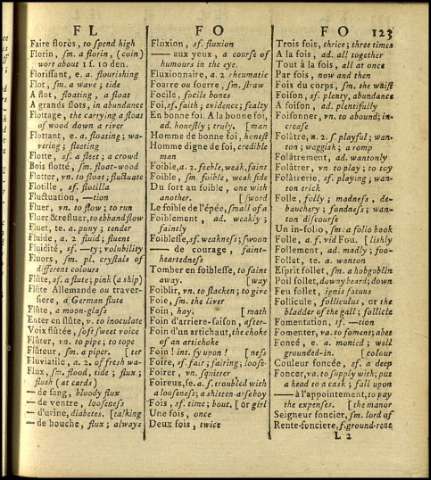 F L
F O
F O
123
Faire florès, to spend high
Florin, sm. a florin (coin)
wort about 1 s. 10 den.
Florissant, e. a. flourishing
Flot, sm. a wave; tide
A flot, floating, a float
A grands flots, in abundance
Flottage, the carrying a float
of wood down a river
Flottant, e. a. floating; wa-
vering; floating
Flotte, sf. a fleet; a crowd
Bois flotté, sm. float-wood
Flotter, vn. to float; fluctuate
Flotille, sf. flotilla
Fluctuation, —tion
Fluer, vn. to flow; to run
Fluer & refluer, to ebb and flow
Fluet, te. a. puny; tender
Fluide, a. 2. fluid; fluent
Fluidité, sf. —ty; volubility
Fluors, sm. pl. crystals of
different colours
Flûte, sf. a flute; pink (a ship)
Flûte Allemande ou traver-
siere, a German flute
Flûte, a moon-glass
Enter en flûte, v. to inoculate
Voix flûtée, soft sweet voice
Flûter, vn. to pipe; to tope
Flûteur, sm. a piper. [ter
Fluviatile, a. 2. of fresh wa-
Flux, sm. flood, tide; flux;
flush (at cards)
— de sang, bloody flux
— de ventre, looseness
— d'urine, diabetes. [talking
— de bouche, flux; always
Fluxion, sf. fluxion
— aux yeux, a course of
humours in the eye.
Fluxionnaire, a. 2 rheumatic
Foarre ou fouerre, sm. straw
Focile, focile bones
Foi, sf. faith; evidence; fealty
En bonne foi. A la bonne foi,
ad. honestly; truly. [man
Homme de bonne foi, honest
Homme digne de foi, credible
man
Foible, a. 2. feeble, weak, faint
Foible, sm foible, weak side
Du fort au foible, one with
another. [sword
Le foible de l'épée, small of a
Foiblement, ad. weakly;
faintly
Foiblesse, sf. weakness; swoon
— de courage, faint-
heartedness
Tomber en foiblesse, to faint
away. [way
Foiblir, vn. to slacken; to give
Foie, sm. the liver
Foin, hay. [math
Foin d'arriere-saison, after-
Foin d'un artichaut, the choke
of an artichoke
Foin! int. fy upon! [ness
Foire, sf. fair; fairing; loose-
Foirer, vn. squitter
Foireux, se. a. f. troubled with
a looseness; a shitten-a-se boy
Fois, sf. time; bout, [or girl
Une fois, once
Deux fois, twice
Trois fois, thrice; three times
A la fois, ad. all together
Tout à la fois, all at once
Par fois, now and then
Fois du corps, sm. the waist
Foison, sf. plenty, abundance
A foison, ad. plentifully
Foisonner, vn. to abound; in-
crease
Folâtre, a. 2. f playful; wan-
ton; waggish; a romp
Folâtrement, ad. wantonly
Folâtrer, vn. to play; to toy
Folâtrerie, sf. playing; wan-
ton trick
Folie, folly; madness, de-
bauchery; fondness; wan-
ton discourse
Un in-folio, sm. a folio book
Folle, a. f. vid Fou. [lishly
Follement, ad. madly; foo-
Follet, te. a. wanton
Esprit follet, sm. a hobgoblin
Poil follet, downy beard; down
Feu follet, ignis fatuus
Follicule, folliculus, or the
bladder of the gall; follicle
Fomentation, sf. —tion
Fomenter, va. to foment; abet
Foncé, e. a. monied; well
grounded-in. [colour
Couleur foncée, sf. a deep
Foncer, va. to supply with; put
a head to a cask; fall upon
— à l'appointement, to pay
the expenses. [the manor
Seigneur foncier, sm. lord of
Rente-fonciere, f. ground-rent
L 2